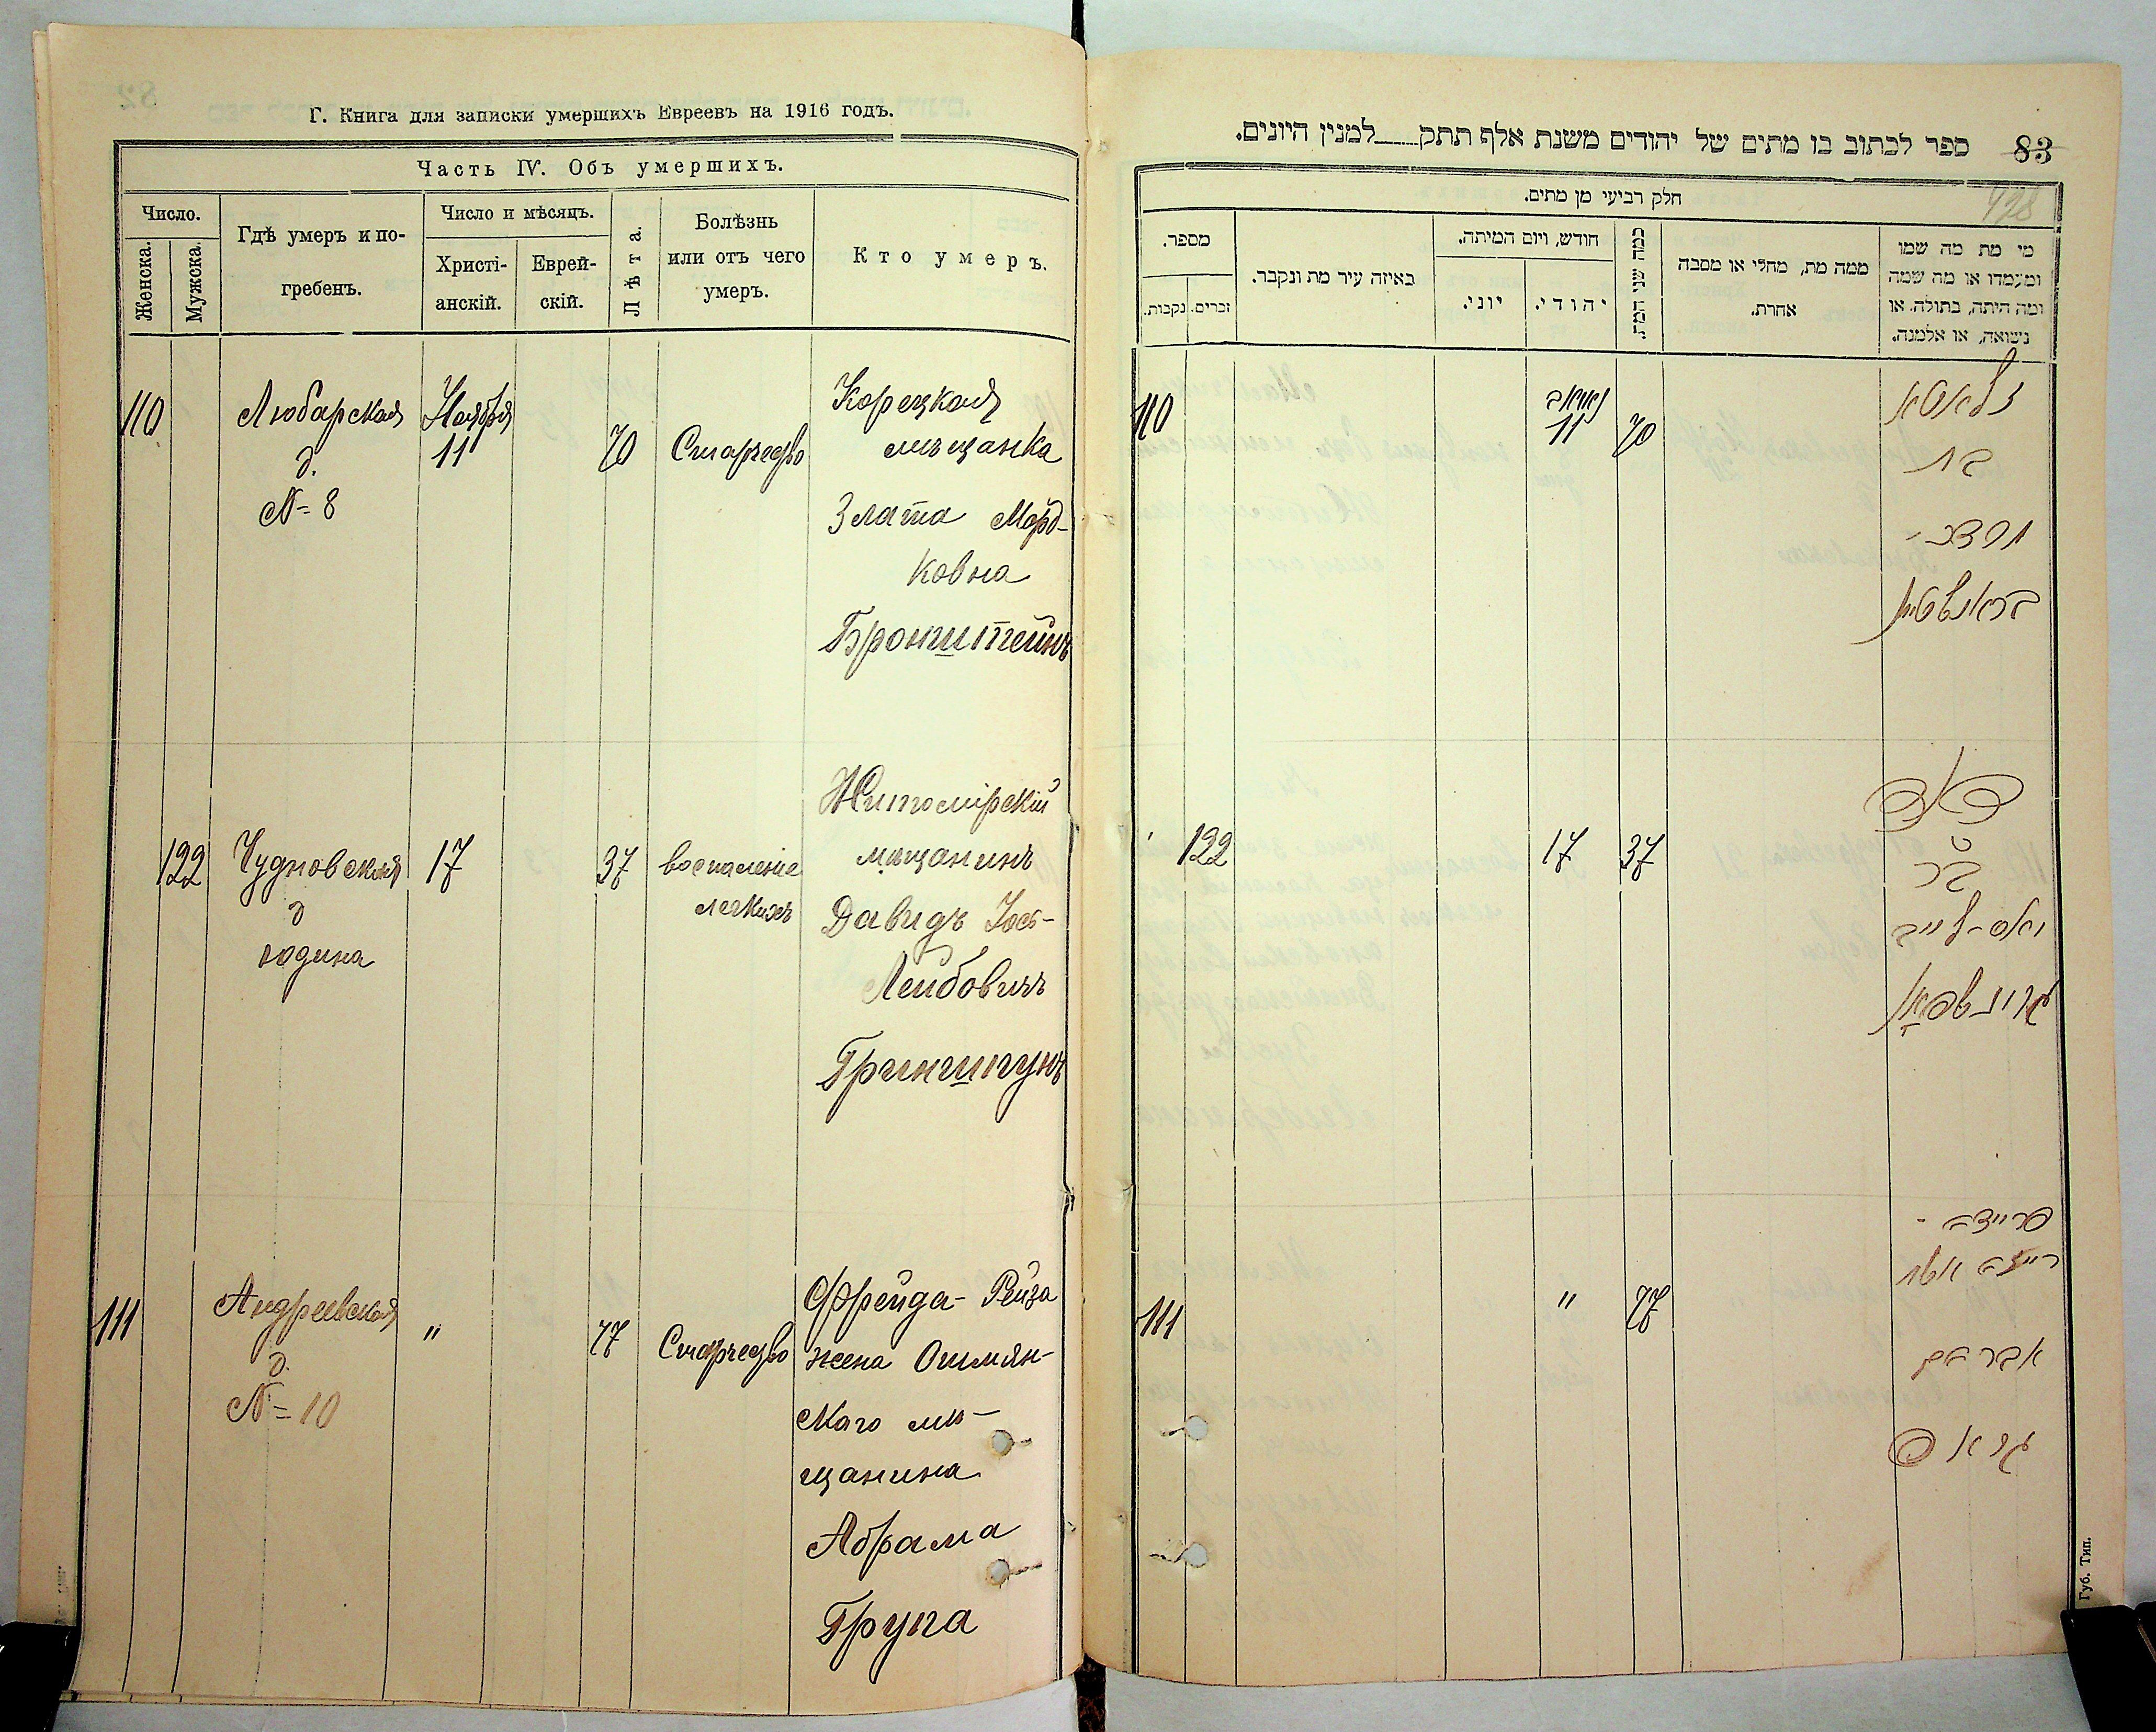 Г. Книга для записки умершихъ Евреевъ на 1916 годъ.
Часть IV. Объ умершихъ.
Число.
Женска.
Мужска.
Гдѣ умеръ и по-
гребенъ.
Число и мѣсяцъ.
Христі-
анскій.
Еврей-
скій.
Лѣта.
Болѣзнь
или отъ чего
умеръ.
Кто умеръ.
110
Любарская
д.
№ 8
Ноября
11
70
Старчество
Корецкая
мѣщанка
Злата Морд-
ковна
Бронштейнъ
122
Чудновская
д
Година
17
37
воспаленіе
легкихъ
Житомірскій
мѣщанинъ
Давидъ Іось-
Лейбовичъ
Гриншпунъ
111
Андреевская
д.
№ 10
"
77
Старчество
Фрейда-Рейза
жена Ошмян-
скаго мѣ-
щанина
Абрама
Група
83
ספר לכתוב בו מתים של יהודים משנת אלף תתק למנין היונים.
428
חלק רביעי מן מתים.
מספר.
זכרים.
נקבות.
באיזה עיר מת ונקבר.
חודש, ויום המיתה.
יוני.
יהודי.
כמה שני המת.
ממה מת, מחלי או מסבה
אחרת.
מי מת מה שמו
ומעמדו או מה שמה
ומה היתה, בתולה. או
נשואה, או אלמנה.
110
11
70
זלאטא
בת
מרדכי
בראנשטיין
122
17
37
דוד
בר
יאס-לייב
גרינשפאן
111
"
77
פריידה-
רייזה אשת
אברהם
גרופ
Губ. Тип.